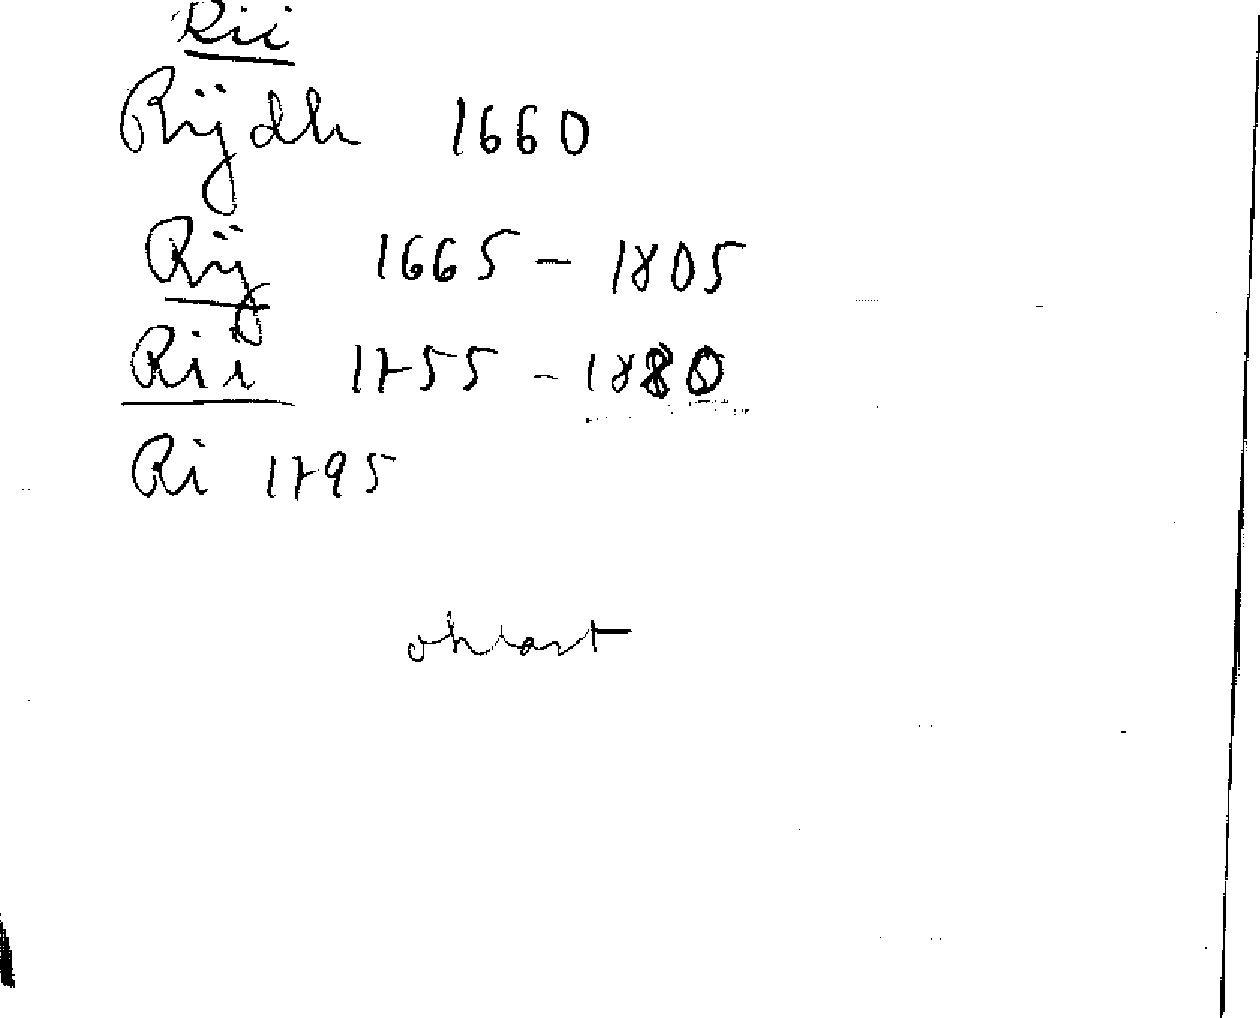 Rii
Rijdh 1660
Rij 1665 - 1805
Rii 1755 - 1880
Ri 1795